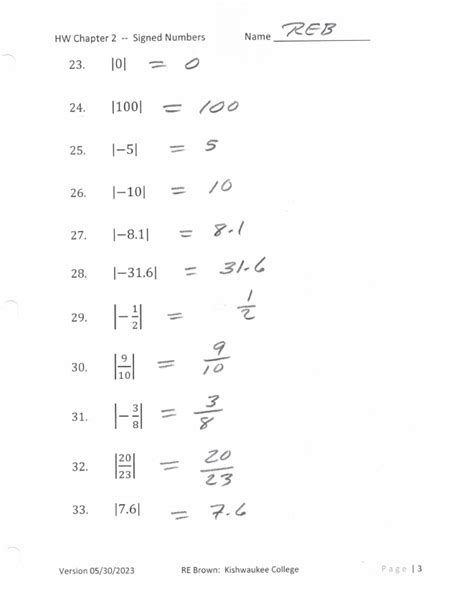 HW Chapter 2 -- Signed Numbers Name REB
23. |0| = 0
24. |100| = 100
25. |−5| = 5
26. |−10| = 10
27. |−8.1| = 8.1
28. |−31.6| = 31.6
29. |−1/2| = 1/2
30. |9/10| = 9/10
31. |−3/8| = 3/8
32. |20/23| = 20/23
33. |7.6| = 7.6
Version 05/30/2023 RE Brown: Kishwaukee College Page | 3